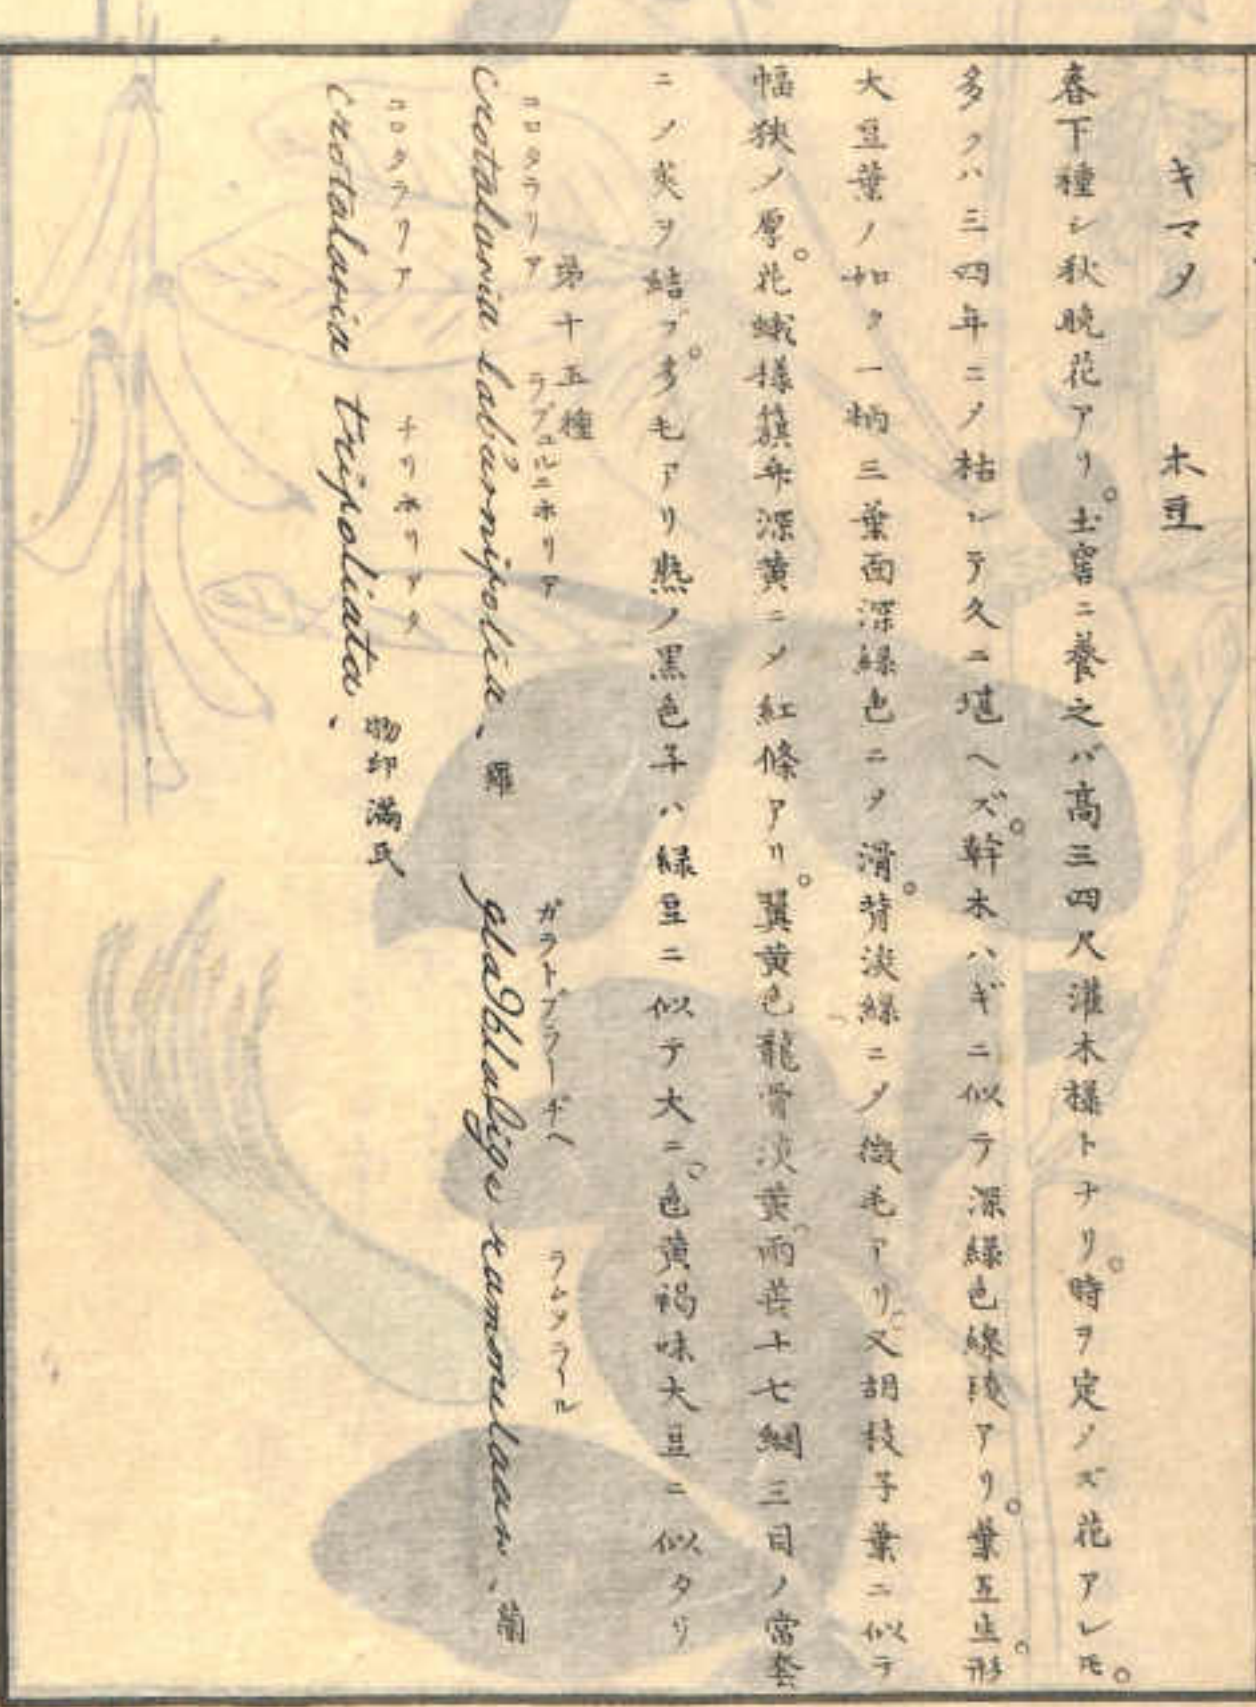 キマメ 木豆
春下種シ秋晩花アリ。土窖ニ養之バ高三四尺灌木様トナリ。時ヲ定メズ花アレ𪜈。
多クハ三四年ニ〆枯レテ久ニ堪ヘズ。幹木ハギニ似テ深緑色線陵アリ。葉互生。形
大豆葉ノ如ク一柄三葉面深緑色ニ〆滑。背淡緑ニ〆微毛アリ。又胡枝子葉ニ似テ
幅狭ノ厚。花蛾様簱弁深黄ニ〆紅條アリ。翼黄色龍骨淡黄。両蕋十七綱三目ノ常套
ニ〆莢ヲ結ブ。多毛アリ熟〆黒色子ハ緑豆ニ似テ大ニ。色黄褐味大豆ニ似タリ
第十五種
コロタラリア ラブュルニホリア ガラトブラーヂヘ ラムメラール
crotalaria laburnifolia、羅 gladbladige rammelaar、蘭
コロタラリア チリホリアタ
crotalaria trifoliata、物印満氏